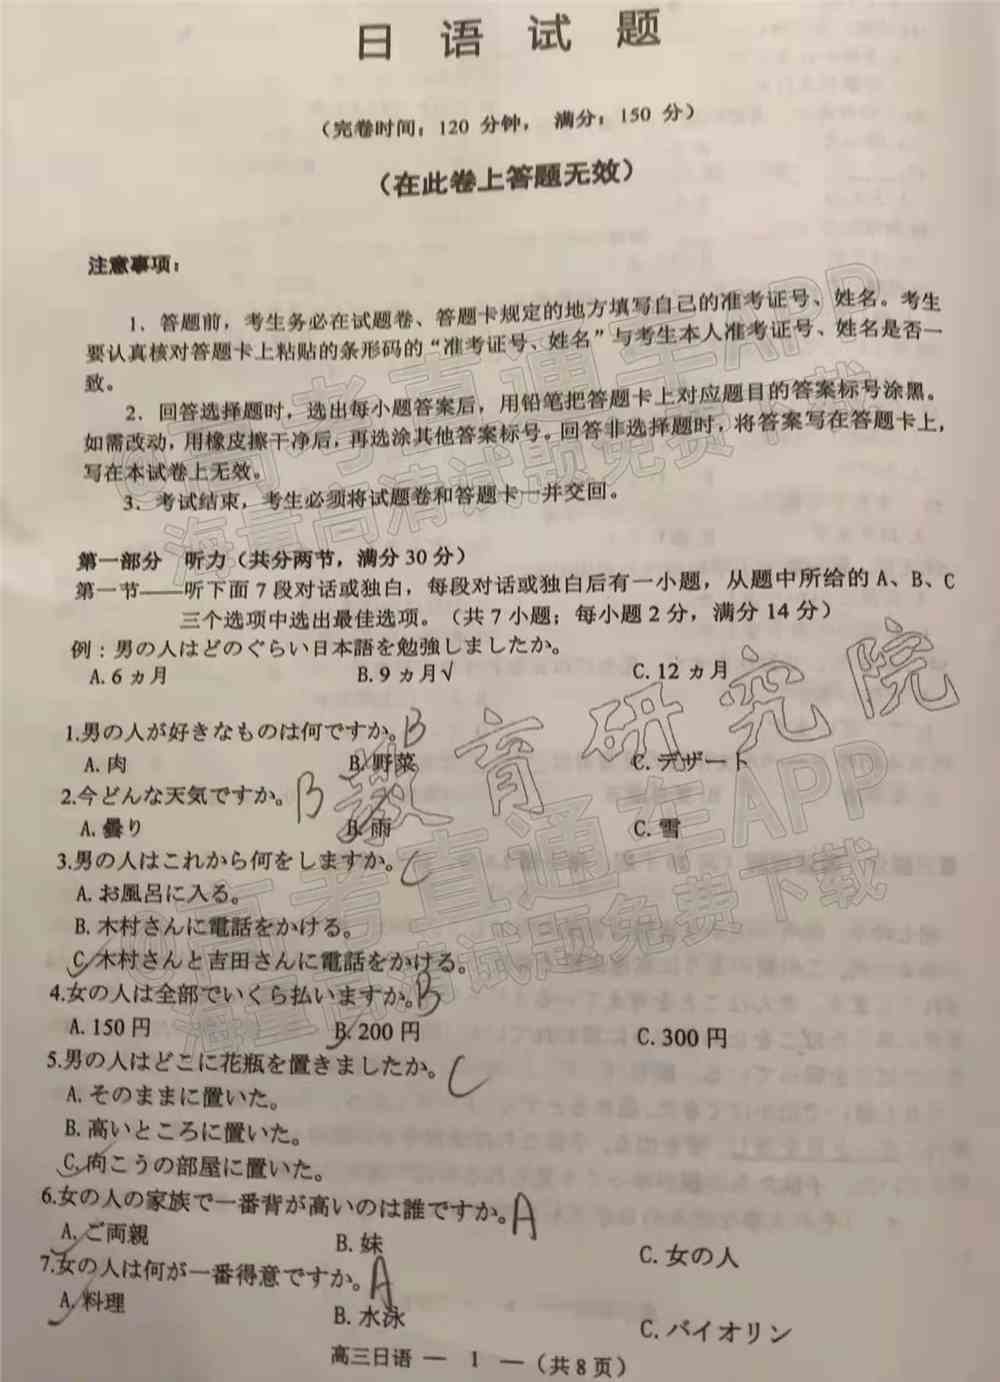 日语试题
（完卷时间：120 分钟， 满分：150 分）
（在此卷上答题无效）
注意事项：
1、答题前，考生务必在试题卷、答题卡规定的地方填写自己的准考证号、姓名。考生
要认真核对答题卡上粘贴的条形码的“准考证号、姓名”与考生本人准考证号、姓名是否一
致。
2、回答选择题时，选出每小题答案后，用铅笔把答题卡上对应题目的答案标号涂黑。
如需改动，用橡皮擦干净后，再选涂其他答案标号。回答非选择题时，将答案写在答题卡上，
写在本试卷上无效。
3、考试结束，考生必须将试题卷和答题卡一并交回。
第一部分 听力（共分两节，满分 30 分）
第一节——听下面 7 段对话或独白，每段对话或独白后有一小题，从题中所给的 A、B、C
三个选项中选出最佳选项。（共 7 小题；每小题 2 分，满分 14 分）
例：男の人はどのぐらい日本語を勉強しましたか。
A. 6 ヵ月 B. 9 ヵ月√ C. 12 ヵ月
1.男の人が好きなものは何ですか。B
A. 肉 B. 野菜 C. デザート
2.今どんな天気ですか。B
A. 曇り B. 雨 C. 雪
3.男の人はこれから何をしますか。C
A. お風呂に入る。
B. 木村さんに電話をかける。
C. 木村さんと吉田さんに電話をかける。
4.女の人は全部でいくら払いますか。B
A. 150 円 B. 200 円 C. 300 円
5.男の人はどこに花瓶を置きましたか。C
A. そのままに置いた。
B. 高いところに置いた。
C. 向こうの部屋に置いた。
6.女の人の家族で一番背が高いのは誰ですか。A
A. ご両親 B. 妹 C. 女の人
7.女の人は何が一番得意ですか。A
A. 料理 B. 水泳 C. バイオリン
高三日语 — 1 —（共 8 页）
@高考直通车APP
海量高清试题免费下载
教育研究院
@高考直通车APP
海量高清试题免费下载